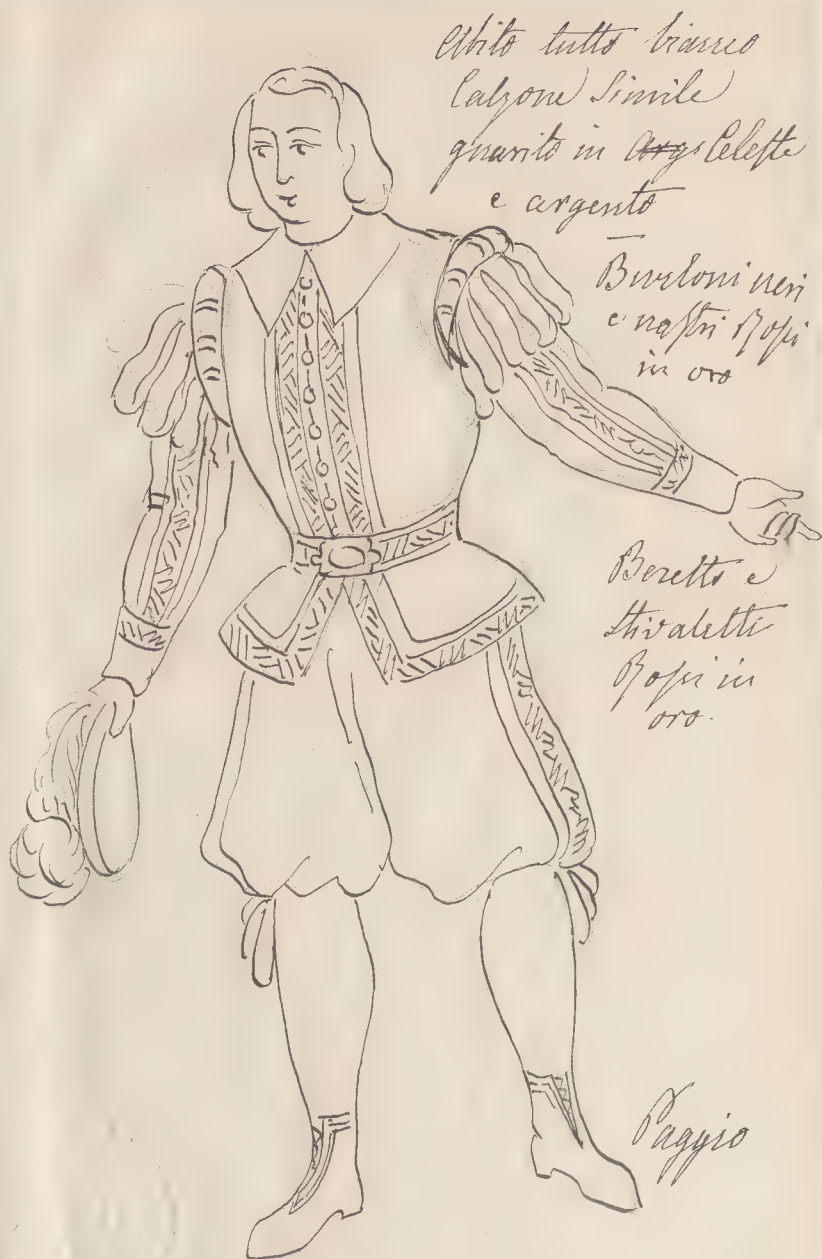 Abito tutto bianco
Calzone Simile
guarnito in Celeste
e argento
neri
e nastri Rossi
in oro
Beretto e
Stivaletti
Rossi in
oro.
Paggio